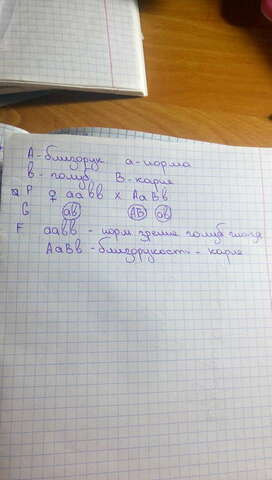 А - близорук а - норма
в - голуб В - карие
P ♀ аавв х АаВв
G ав АВ ав
F аавв - норм. зрение голуб глаза
АаВв - близорукость - карие